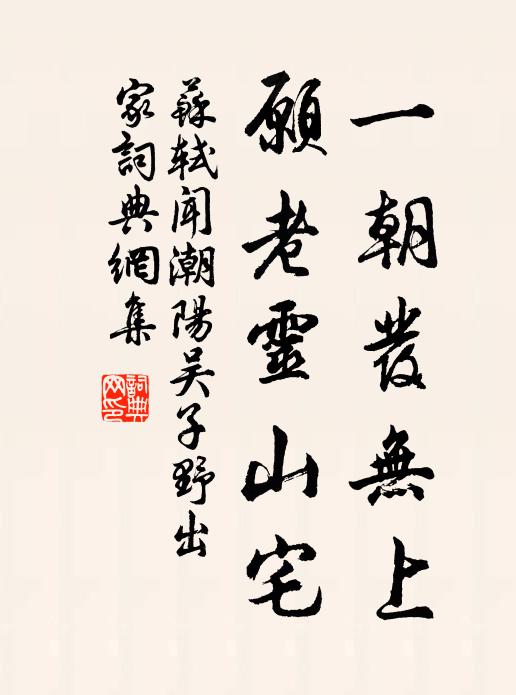 一朝發無上
願老靈山宅
蘇軾聞潮陽吳子野出
家詞典網集
詞典
网印